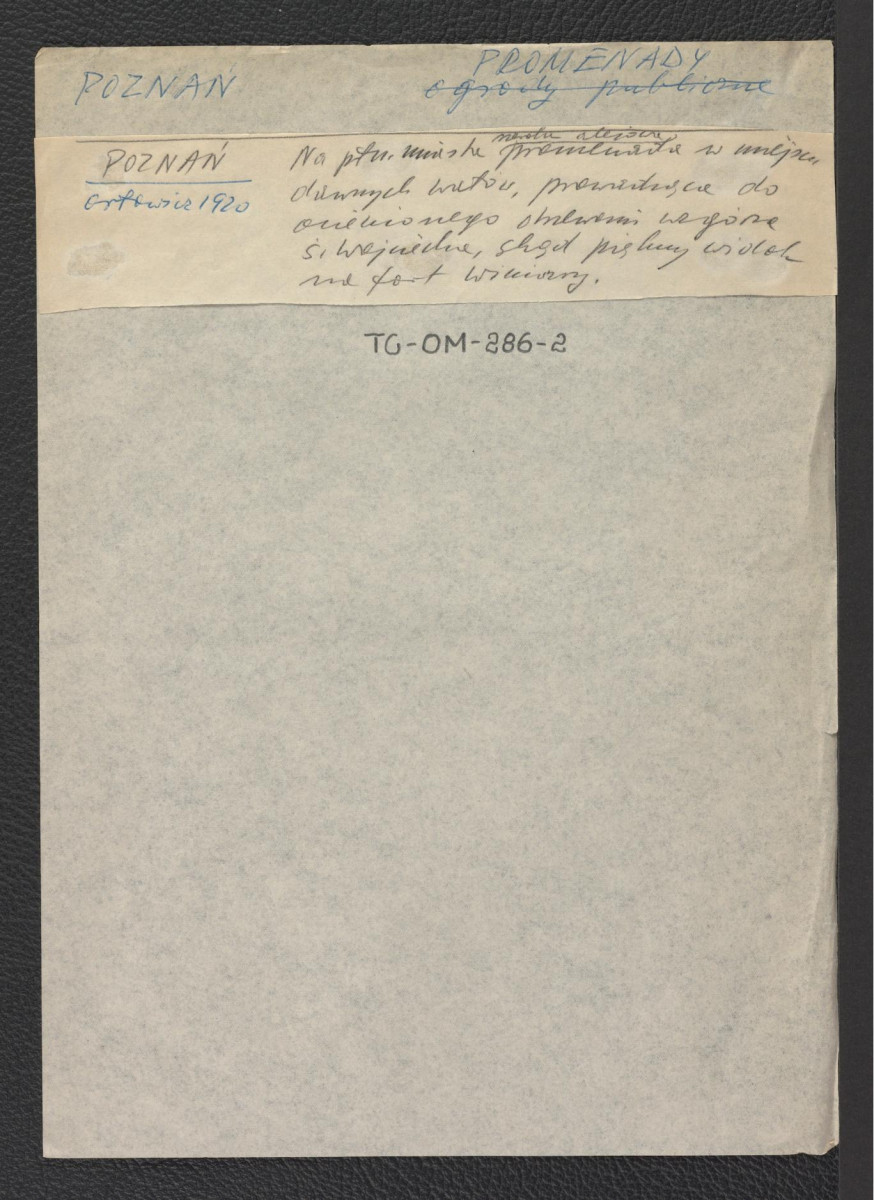 POZNAŃ
PROMENADY
ogrody publiczne
POZNAŃ
Orłowicz 1920
Na płn. miasta promenada w miejscu
dawnych wałów, prowadząca do
ocienionego drzewami wzgórza
ś. Wojciecha, skąd piękny widok
na fort Winiary.
TG-OM-286-2